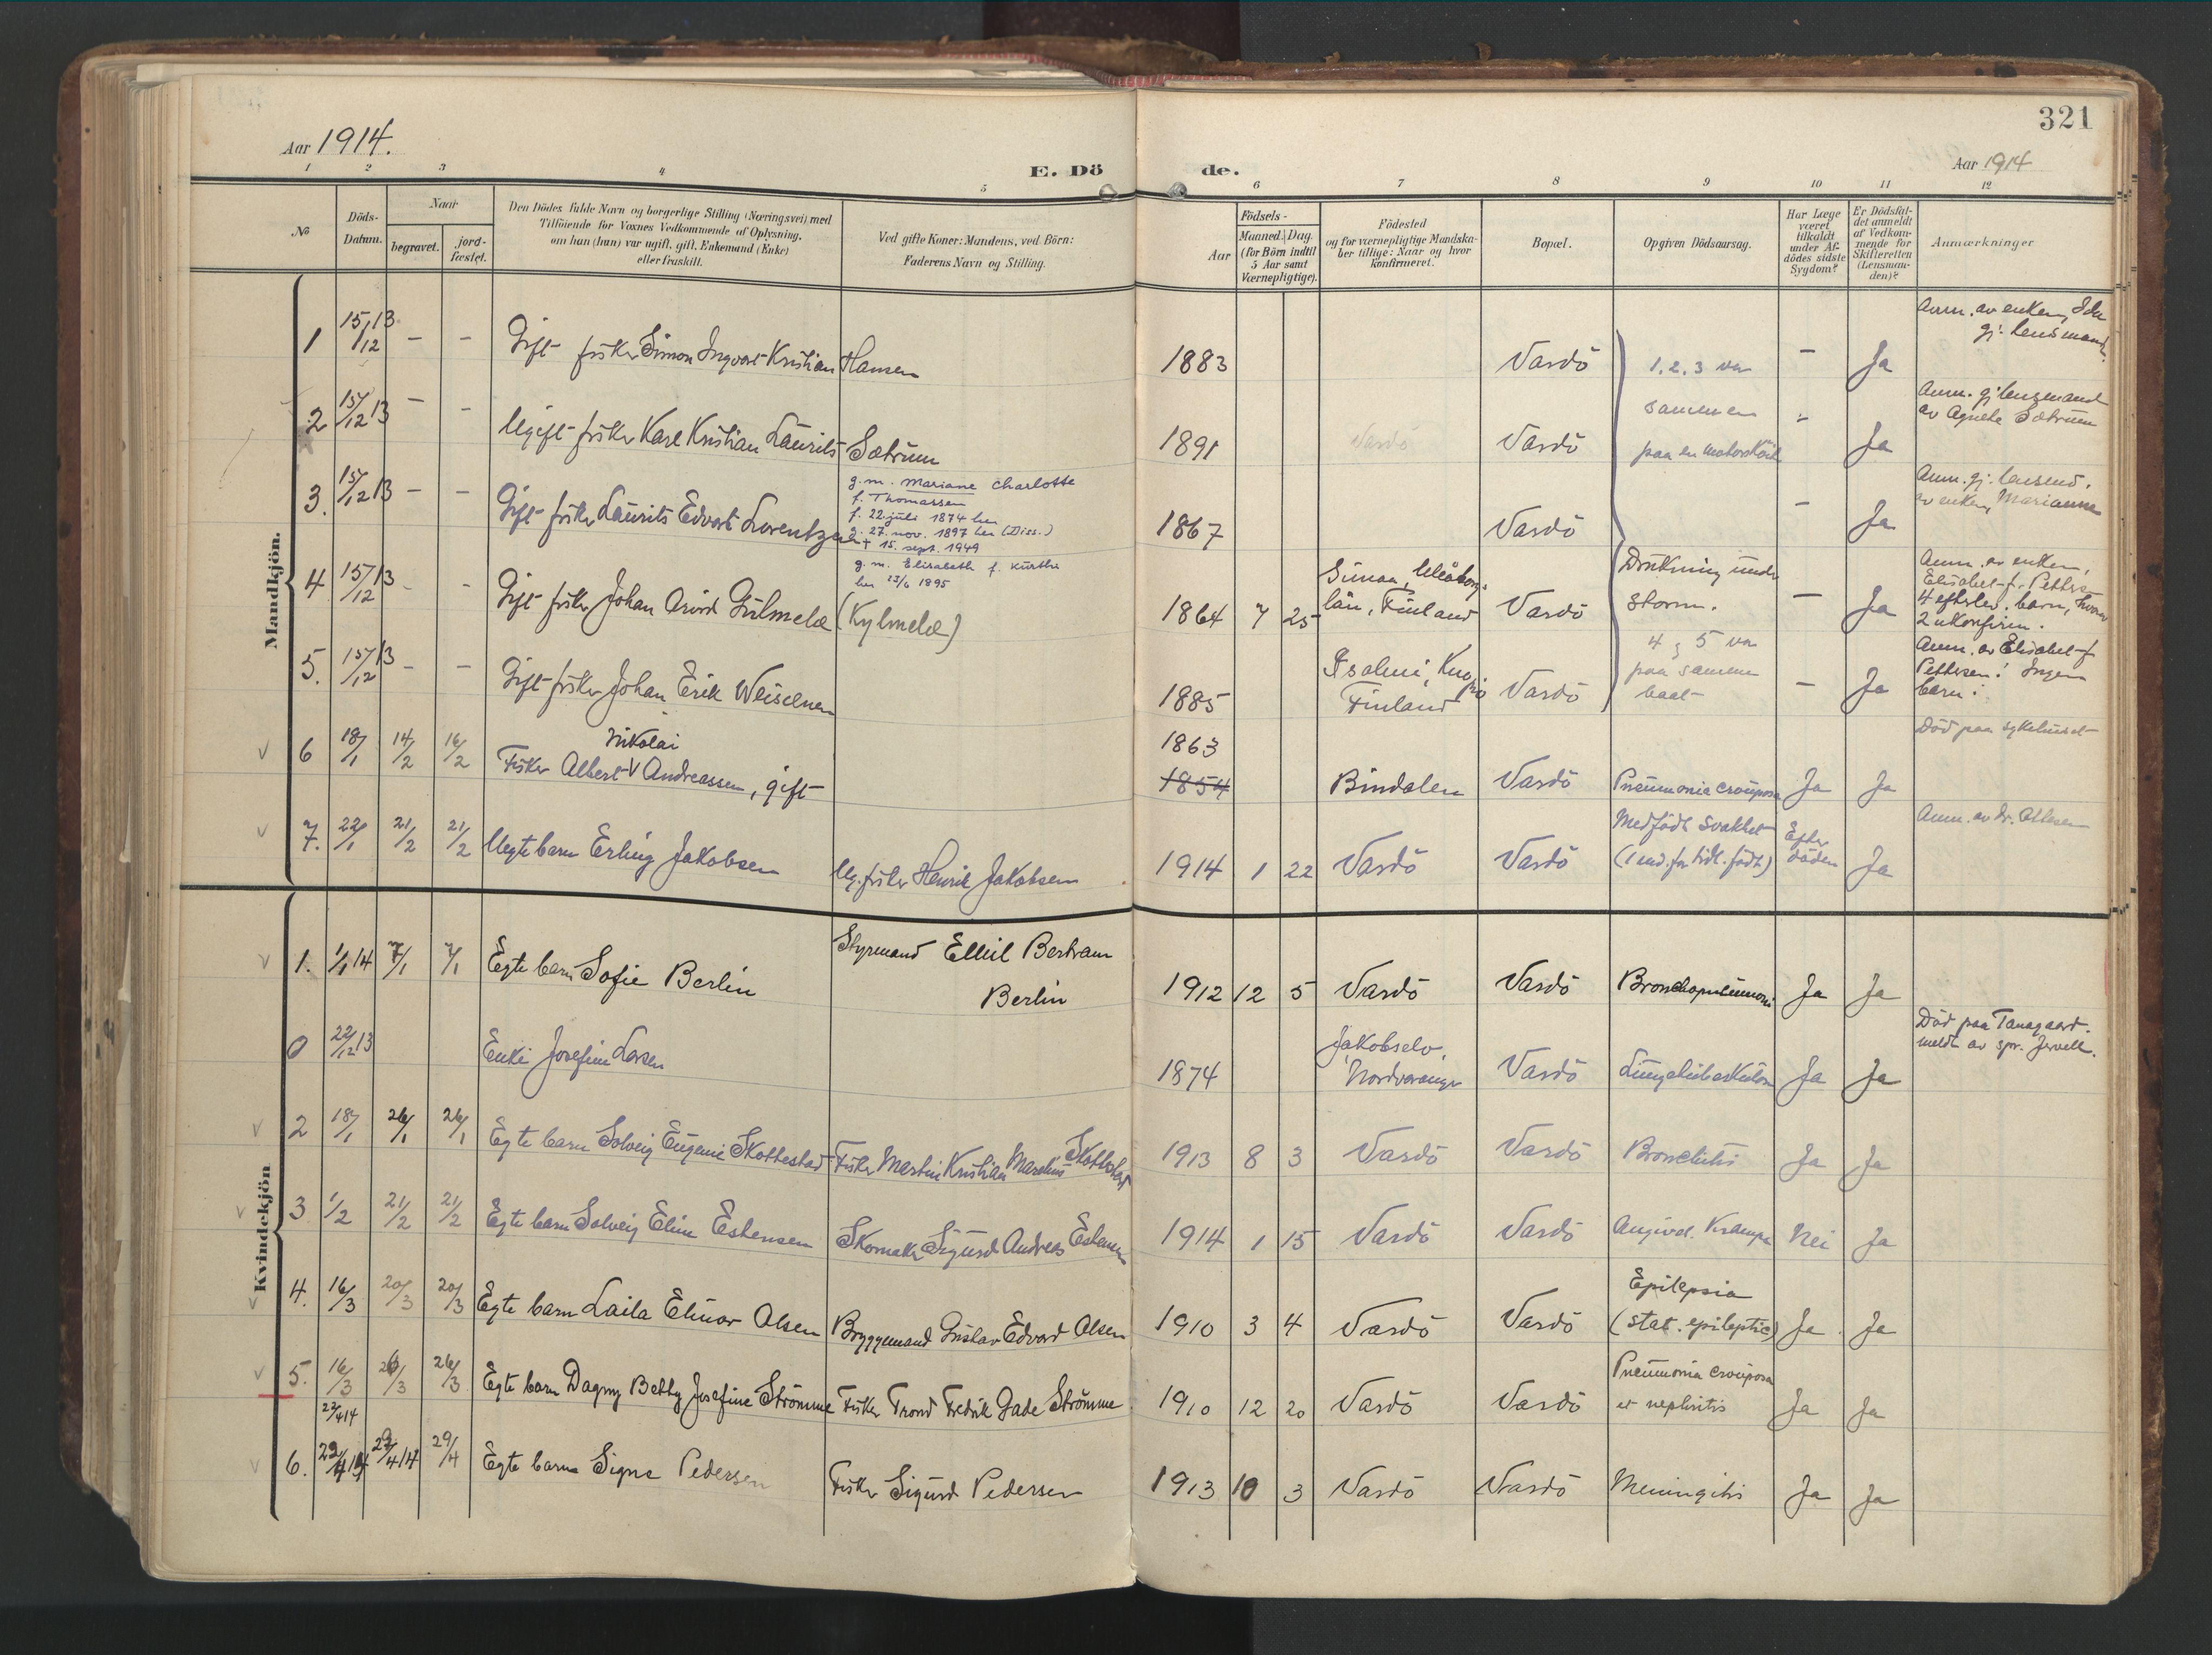 321
Aar 1914.
E. Dö de.
Aar 1914
1 2 3 4 5 6 7 8 9 10 11 12
No
Döds-Datum.
Naar
begravet.
jord-fæstet.
Den Dödes fulde Navn og borgerlige Stilling (Næringsvei) med
Tilföiende for Voxnes Vedkommende af Oplysning,
om han (hun) var ugift, gift, Enkemand (Enke)
eller fraskilt.
Ved gifte Koner: Mandens, ved Börn:
Faderens Navn og Stilling.
Födsels-
Aar
Maaned. Dag.
(for Börn indtil
5 Aar samt
Værnepligtige).
Födested
og for værnepligtige Mandska-
ber tillige: Naar og hvor
konfirmeret.
Bopæl.
Opgiven Dödsaarsag.
Har Læge
været
tilkaldt
under Af-
dödes sidste
Sygdom?
Er Dödsfal-
det anmeldt
af Vedkom-
mende for
Skifteretten
(Lensman-
den)?
Anmærkninger
Mandkjön.
1 15/12 13 - - Gift fisker Simon Ingvart Kristian Hansen 1883 Vardö 1. 2. 3 var - Ja Anm. av enken, Ida
gj. lensmand.
2 15/12 13 - - Ugift fisker Karl Kristian Laurits Sætrum 1891 Vardö Vardö sammen
paa en motorskøit " Ja Anm. gj. lensmand
av Agnete Sætrum
3. 15/12 13 - - Gift fisker Laurits Edvart Lorentzen 1867 Vardö - Ja Anm. gj. lensmd.
av enken, Marianne
g.m. Mariane Charlotte
f. Thomassen
f. 22. juli 1874 her
g. 27. nov. 1897 her (Diss.)
+ 15. sept. 1949
4 15/12 13 - - Gift fisker Johan Arvid Gülmelæ (Kylmelæ) 1864 7 25 Simaa, Uleåborgs
län, Finland Vardö Drukning under
storm. - Ja Anm. av enken,
Elisabet f. Petters
4 efterlev. barn, hvorav
2 ukonfirm.
g.m. Elisabeth f. Kurtti
her 23/6 1895
5. 15/12 13 - - Gift fisker Johan Erik Weiselnen 1885 Isalmi, Kuopio
Finland Vardö 4 & 5 var
paa samme
baat - Ja Anm. av Elisabet f.
Pettersen! Ingen
barn!
6 18/1 14/2 16/2 Fisker Albert V Andreassen, gift
Nikolai
1863
1854 Bindalen Vardö Pneumonia crouposa Ja Ja Död paa sykehuset
7. 22/1 21/2 21/2 Uegte barn Erling Jakobsen Ug. fisker Henrik Jakobsen 1914 1 22 Vardö Vardö Medfödt svakhet
(1 md. for tidl. födt) Efter
döden Ja Anm. av dr. Ottesen
Kvindekjön
1. 1/1 14 7/1 7/1 Egte barn Sofie Berlin Styrmand Emil Bertram
Berlin 1912 12 5 Vardö Vardö Bronchopneumoni Ja Ja
0 22/12 13 Enke Josefine Larsen 1874 Jakobselv,
Nordvaranger Vardö Lungetuberkulose Ja Ja Död paa Tanagaard.
meldt av spr. Jervell.
2 18/1 26/1 26/1 Egte barn Solveig Eugenie Skottestad Fisker Martin Kristian Marelius Skottestad 1913 8 3 Vardö Vardö Bronchitis Ja Ja
3 1/2 21/2 21/2 Egte barn Solveig Eline Estensen Skomaker Sigurd Andreas Estensen 1914 1 15 Vardö Vardö Angivel. Krampe Nei Ja
4. 16/3 20/3 20/3 Egte barn Laila Elinor Olsen Bryggemand Gustav Edvard Olsen 1910 3 4 Vardö Vardö Epilepsia
(stat. epileptic) Ja Ja
5. 16/3 26/3 26/3 Egte barn Dagny Betty Josefine Strömme Fisker Trond Fredrik Gade Strömme 1910 12 20 Vardö Vardö Pneumonia crouposa
et nephritis Ja Ja
22/4 14
6. 29/4 14 29/4 Egte barn Signe Pedersen Fisker Sigurd Pedersen 1913 10 3 Vardö Vardö Meningitis Ja Ja